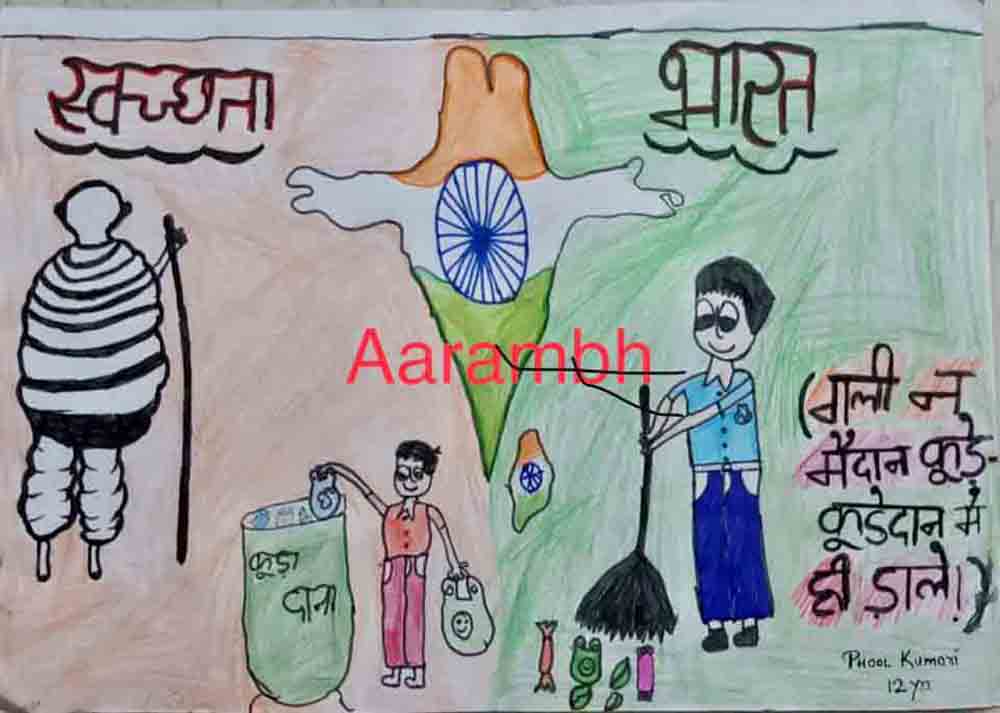 स्वच्छता
भारत
Aarambh
कूड़ा
दाना
(नाली न
मैदान कूड़े-
कूडेदान में
ही ड़ाले।)
PHOOL Kumari
12 yrs